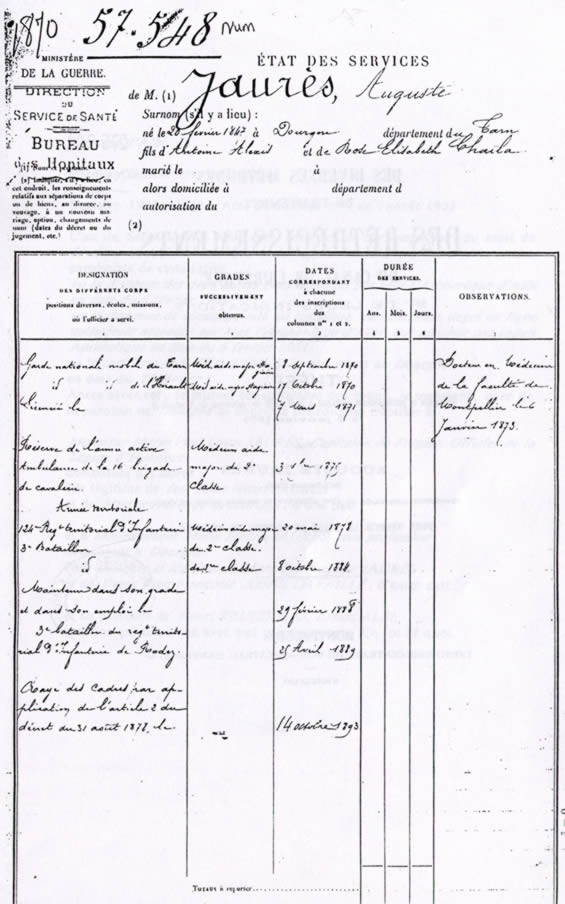 1870 57.548 Num
MINISTÈRE
DE LA GUERRE.
DIRECTION
DU
SERVICE DE SANTÉ
BUREAU
des Hôpitaux
(1) Nom et prénoms.
(2) Indiquer, s'il y a lieu, en
cet endroit, les renseignements
relatifs aux séparations de corps
ou de biens, au divorce, au
veuvage, à un nouveau ma-
riage, option, changements de
nom (dates du décret ou du
jugement, etc.)
ÉTAT DES SERVICES
de M. (1) Jaurès, Auguste
Surnom (s'il y a lieu) :
né le 20 février 1847 à Dourgne département du Tarn
fils d'Antoine Alexis et de Rose Elisabeth
marié le à
alors domiciliée à département d
autorisation du
(2)
DÉSIGNATION
DES DIFFÉRENTS CORPS
positions diverses, écoles, missions,
où l'officier a servi.
GRADES
SUCCESSIVEMENT
obtenus.
DATES
CORRESPONDANT
à chacune
des inscriptions
des
colonnes nos 1 et 2.
DURÉE
DES SERVICES.
Ans. Mois. Jours.
OBSERVATIONS.
Garde national mobile du Tarn Méd. aide major 8 septembre 1870
id id de l'Hérault 17 octobre 1870
Licencié le 7 Mars 1871
Docteur en Médecine
de la faculté de
Montpellier le 6
Janvier 1873.
Réserve de l'armée active Médecin aide
Ambulance de la 16 brigade major de 2e 1875
de cavalerie classe
Armée territoriale
124e Régt territorial d'Infanterie Médecin aide major 20 mai 1878
3e Bataillon de 2e classe.
id de 1ere classe 8 octobre
Maintenu dans son grade
et dans son emploi le 29 février 1888
3e bataillon du regt territo-
rial d'Infanterie de Rodez 25 Avril 1889
Rayé des cadres par ap-
plication de l'article 2 du
décret du 31 août 1878, le 14 octobre 1893
TOTAUX à reporter